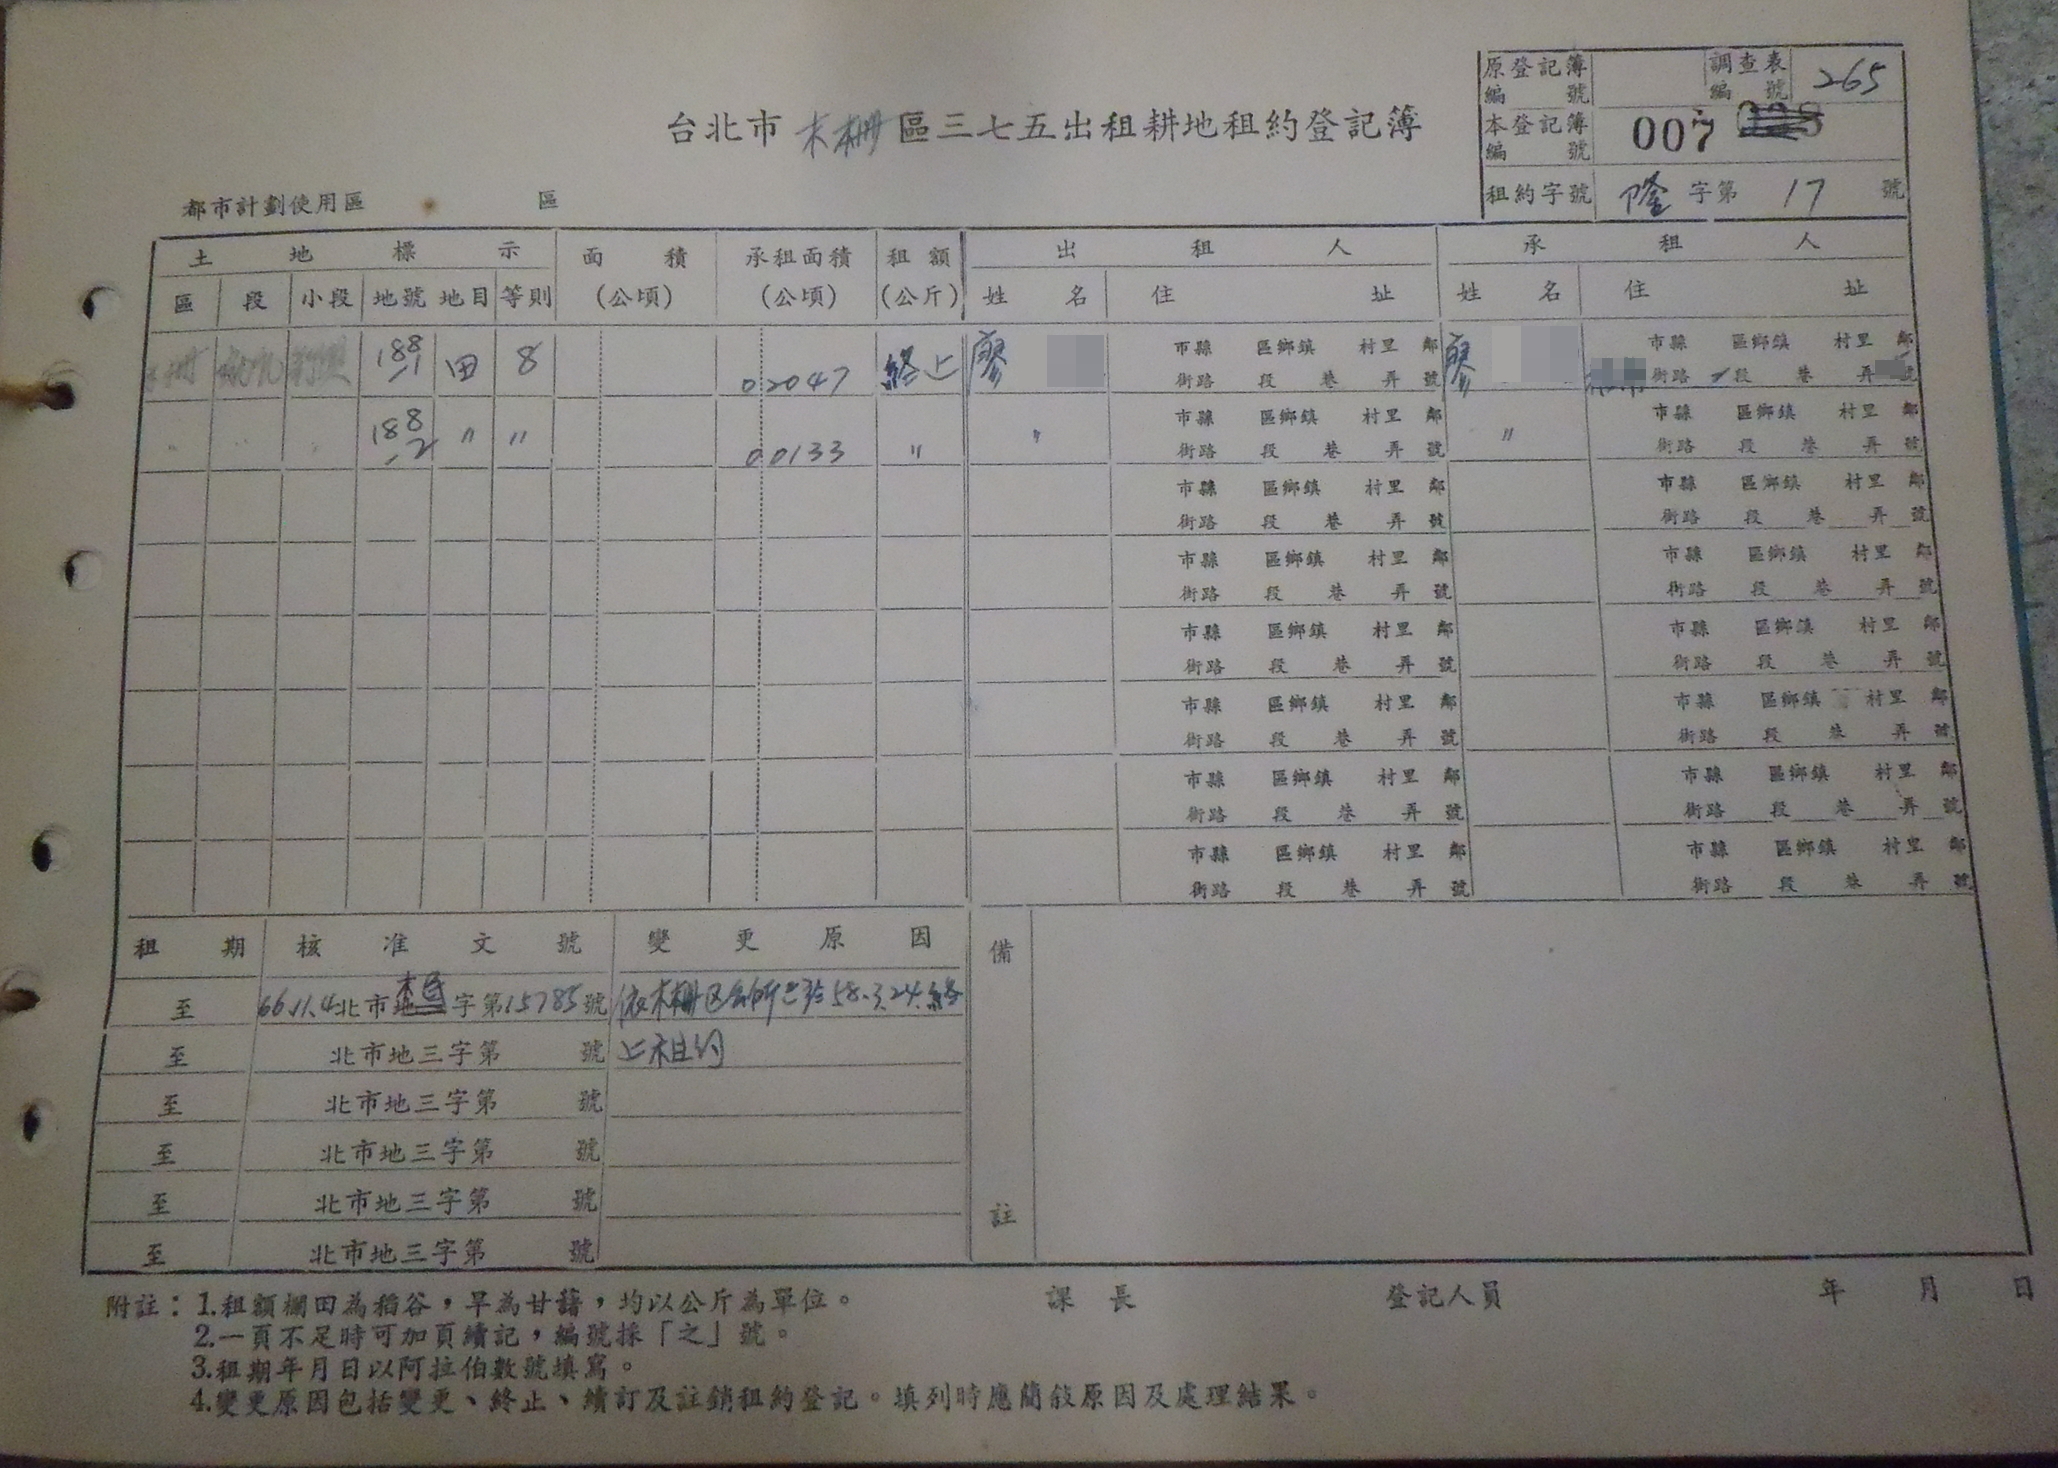 原登記簿編號 調查表編號 265
本登記簿編號 007
租約字號 隆 字第 17 號
台北市木柵區三七五出租耕地租約登記簿
都市計劃使用區 區
土地標示 面積 承租面積 租額 出租人 承租人
區 段 小段 地號 地目 等則 (公頃) (公頃) (公斤) 姓名 住址 姓名 住址
188-1 田 8 0 2047 終止 廖 市縣 區鄉鎮 村里 鄰 廖 市縣 區鄉鎮 村里 鄰
街路 段 巷 弄 號 街路 段 巷 弄 號
〃 〃 〃 188-2 〃 〃 0 0133 〃 〃 市縣 區鄉鎮 村里 鄰 〃 市縣 區鄉鎮 村里 鄰
街路 段 巷 弄 號 街路 段 巷 弄 號
市縣 區鄉鎮 村里 鄰 市縣 區鄉鎮 村里 鄰
街路 段 巷 弄 號 街路 段 巷 弄 號
市縣 區鄉鎮 村里 鄰 市縣 區鄉鎮 村里 鄰
街路 段 巷 弄 號 街路 段 巷 弄 號
市縣 區鄉鎮 村里 鄰 市縣 區鄉鎮 村里 鄰
街路 段 巷 弄 號 街路 段 巷 弄 號
市縣 區鄉鎮 村里 鄰 市縣 區鄉鎮 村里 鄰
街路 段 巷 弄 號 街路 段 巷 弄 號
市縣 區鄉鎮 村里 鄰 市縣 區鄉鎮 村里 鄰
街路 段 巷 弄 號 街路 段 巷 弄 號
市縣 區鄉鎮 村里 鄰 市縣 區鄉鎮 村里 鄰
街路 段 巷 弄 號 街路 段 巷 弄 號
租期 核准文號 變更原因 備註
至 66.11.4北市木民字第15785號 依木柵区公所已於58.3.24.終
至 北市地三字第 號 止租約
至 北市地三字第 號
至 北市地三字第 號
至 北市地三字第 號
至 北市地三字第 號
附註：1.租額欄田為稻谷，旱為甘藷，均以公斤為單位。 課長 登記人員 年 月 日
2.一頁不足時可加頁續記，編號採「之」號。
3.租期年月日以阿拉伯數號填寫。
4.變更原因包括變更、終止、續訂及註銷租約登記。填列時應簡敍原因及處理結果。